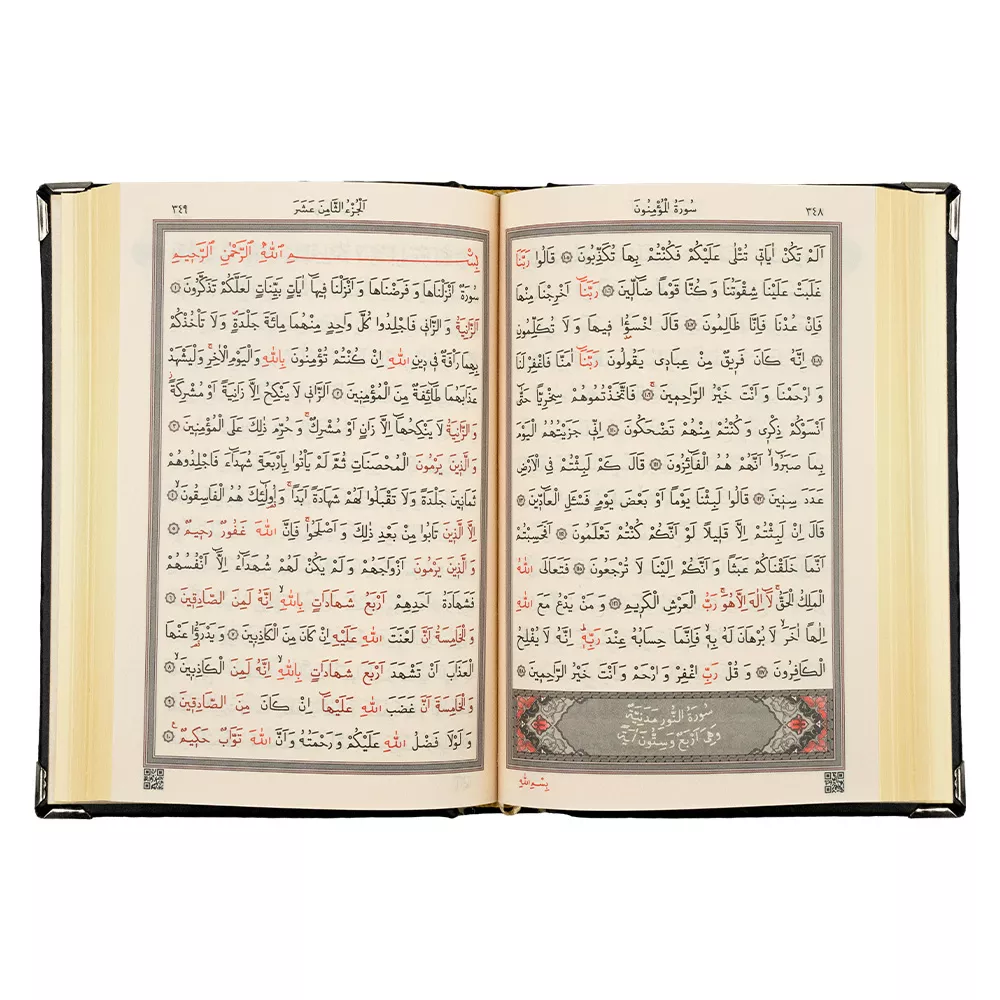 ٣٤٨
سُورَةُ الْمُؤْمِنُونَ
اَلَمْ تَكُنْ اٰيَاتٖي تُتْلٰى عَلَيْكُمْ فَكُنْتُمْ بِهَا تُكَذِّبُونَ ﴿١٠٥﴾ قَالُوا رَبَّنَا
غَلَبَتْ عَلَيْنَا شِقْوَتُنَا وَكُنَّا قَوْمًا ضَٓالّٖينَ ﴿١٠٦﴾ رَبَّنَٓا اَخْرِجْنَا مِنْهَا
فَاِنْ عُدْنَا فَاِنَّا ظَالِمُونَ ﴿١٠٧﴾ قَالَ اخْسَؤُ۫ا فٖيهَا وَلَا تُكَلِّمُونِ
﴿١٠٨﴾ اِنَّهُ كَانَ فَرٖيقٌ مِنْ عِبَادٖي يَقُولُونَ رَبَّنَٓا اٰمَنَّا فَاغْفِرْ لَنَا
وَارْحَمْنَا وَاَنْتَ خَيْرُ الرَّاحِمٖينَ ﴿١٠٩﴾ فَاتَّخَذْتُمُوهُمْ سِخْرِيًّا حَتّٰٓى
اَنْسَوْكُمْ ذِكْرٖي وَكُنْتُمْ مِنْهُمْ تَضْحَكُونَ ﴿١١٠﴾ اِنّٖي جَزَيْتُهُمُ الْيَوْمَ
بِمَا صَبَرُٓوا اَنَّهُمْ هُمُ الْفَٓائِزُونَ ﴿١١١﴾ قَالَ كَمْ لَبِثْتُمْ فِي الْاَرْضِ
عَدَدَ سِنٖينَ ﴿١١٢﴾ قَالُوا لَبِثْنَا يَوْمًا اَوْ بَعْضَ يَوْمٍ فَسْـَٔلِ الْعَٓادّٖينَ ﴿١١٣﴾
قَالَ اِنْ لَبِثْتُمْ اِلَّا قَلٖيلًا لَوْ اَنَّكُمْ كُنْتُمْ تَعْلَمُونَ ﴿١١٤﴾ اَفَحَسِبْتُمْ
اَنَّمَا خَلَقْنَاكُمْ عَبَثًا وَاَنَّكُمْ اِلَيْنَا لَا تُرْجَعُونَ ﴿١١٥﴾ فَتَعَالَى اللّٰهُ
الْمَلِكُ الْحَقُّ لَٓا اِلٰهَ اِلَّا هُوَ رَبُّ الْعَرْشِ الْكَرٖيمِ ﴿١١٦﴾ وَمَنْ يَدْعُ مَعَ اللّٰهِ
اِلٰهًا اٰخَرَ لَا بُرْهَانَ لَهُ بِهٖ فَاِنَّمَا حِسَابُهُ عِنْدَ رَبِّهٖ اِنَّهُ لَا يُفْلِحُ
الْكَافِرُونَ ﴿١١٧﴾ وَقُلْ رَبِّ اغْفِرْ وَارْحَمْ وَاَنْتَ خَيْرُ الرَّاحِمٖينَ ﴿١١٨﴾
سُورَةُ النُّورِ مَدَنِيَّةٌ
وَهِيَ اَرْبَعٌ وَسِتُّونَ اٰيَةً
بِسْمِ اللّٰهِ
اَلْجُزْءُ الثَّامِنَ عَشَرَ
٣٤٩
بِسْمِ اللّٰهِ الرَّحْمٰنِ الرَّحٖيمِ
سُورَةٌ اَنْزَلْنَاهَا وَفَرَضْنَاهَا وَاَنْزَلْنَا فٖيهَٓا اٰيَاتٍ بَيِّنَاتٍ لَعَلَّكُمْ تَذَكَّرُونَ ﴿١﴾
اَلزَّانِيَةُ وَالزَّانٖي فَاجْلِدُوا كُلَّ وَاحِدٍ مِنْهُمَا مِائَةَ جَلْدَةٍ وَلَا تَأْخُذْكُمْ
بِهِمَا رَأْفَةٌ فٖي دٖينِ اللّٰهِ اِنْ كُنْتُمْ تُؤْمِنُونَ بِاللّٰهِ وَالْيَوْمِ الْاٰخِرِ وَلْيَشْهَدْ
عَذَابَهُمَا طَٓائِفَةٌ مِنَ الْمُؤْمِنٖينَ ﴿٢﴾ اَلزَّانٖي لَا يَنْكِحُ اِلَّا زَانِيَةً اَوْ مُشْرِكَةً
وَالزَّانِيَةُ لَا يَنْكِحُهَٓا اِلَّا زَانٍ اَوْ مُشْرِكٌ وَحُرِّمَ ذٰلِكَ عَلَى الْمُؤْمِنٖينَ ﴿٣﴾
وَالَّذٖينَ يَرْمُونَ الْمُحْصَنَاتِ ثُمَّ لَمْ يَأْتُوا بِاَرْبَعَةِ شُهَدَٓاءَ فَاجْلِدُوهُمْ
ثَمَانٖينَ جَلْدَةً وَلَا تَقْبَلُوا لَهُمْ شَهَادَةً اَبَدًا وَاُو۬لٰٓئِكَ هُمُ الْفَاسِقُونَ ﴿٤﴾
اِلَّا الَّذٖينَ تَابُوا مِنْ بَعْدِ ذٰلِكَ وَاَصْلَحُوا فَاِنَّ اللّٰهَ غَفُورٌ رَحٖيمٌ ﴿٥﴾
وَالَّذٖينَ يَرْمُونَ اَزْوَاجَهُمْ وَلَمْ يَكُنْ لَهُمْ شُهَدَٓاءُ اِلَّٓا اَنْفُسُهُمْ
فَشَهَادَةُ اَحَدِهِمْ اَرْبَعُ شَهَادَاتٍ بِاللّٰهِ اِنَّهُ لَمِنَ الصَّادِقٖينَ ﴿٦﴾
وَالْخَامِسَةُ اَنَّ لَعْنَتَ اللّٰهِ عَلَيْهِ اِنْ كَانَ مِنَ الْكَاذِبٖينَ ﴿٧﴾ وَيَدْرَؤُ۬ا عَنْهَا
الْعَذَابَ اَنْ تَشْهَدَ اَرْبَعَ شَهَادَاتٍ بِاللّٰهِ اِنَّهُ لَمِنَ الْكَاذِبٖينَ ﴿٨﴾
وَالْخَامِسَةَ اَنَّ غَضَبَ اللّٰهِ عَلَيْهَٓا اِنْ كَانَ مِنَ الصَّادِقٖينَ ﴿٩﴾
وَلَوْلَا فَضْلُ اللّٰهِ عَلَيْكُمْ وَرَحْمَتُهُ وَاَنَّ اللّٰهَ تَوَّابٌ حَكٖيمٌ ﴿١٠﴾